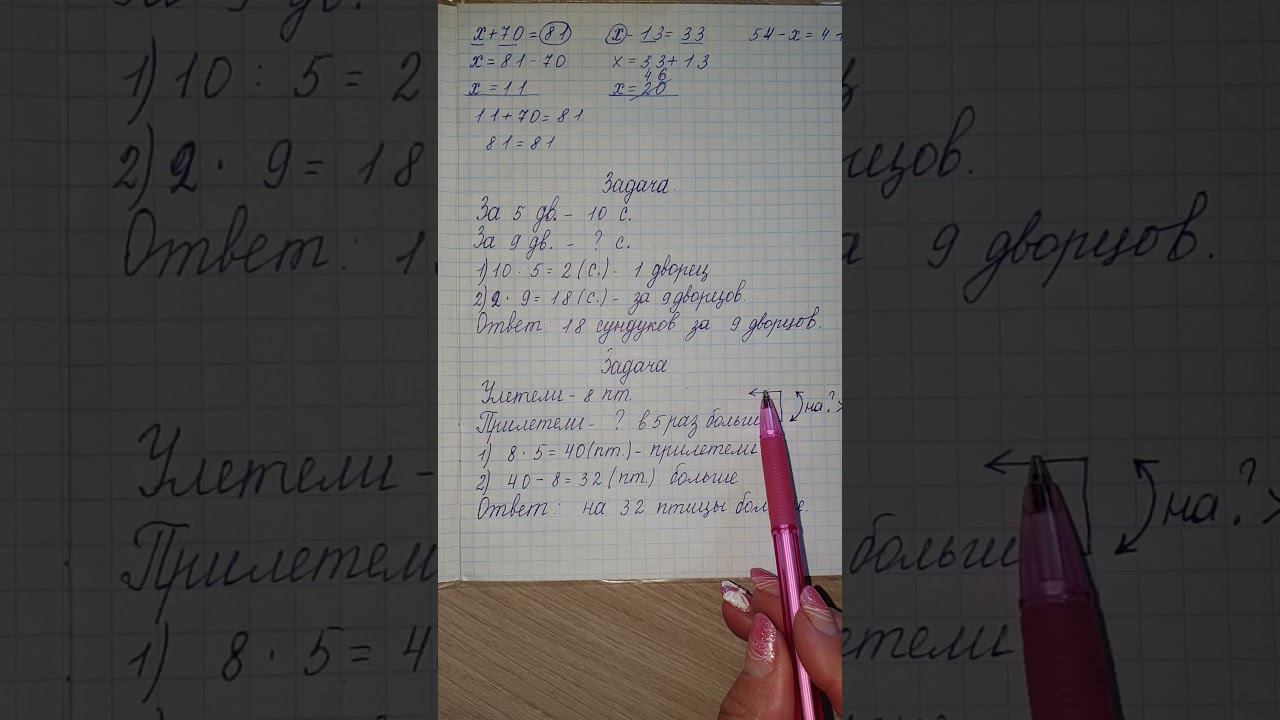 x+70=81 x-13=33 54-x=41
x=81-70 x=33+13
46
x=11 x=20
11+70=81
81=81
Задача.
За 5 дв. - 10 с.
За 9 дв. - ? с.
1) 10 : 5 = 2 (с.) - 1 дворец
2) 2 · 9 = 18 (с.) - за 9 дворцов.
Ответ: 18 сундуков за 9 дворцов.
Задача
Улетели - 8 пт.
Прилетели - ? в 5 раз больше на ? >
1) 8 · 5 = 40 (пт.) - прилетели
2) 40 - 8 = 32 (пт.) больше
Ответ: на 32 птицы больше.